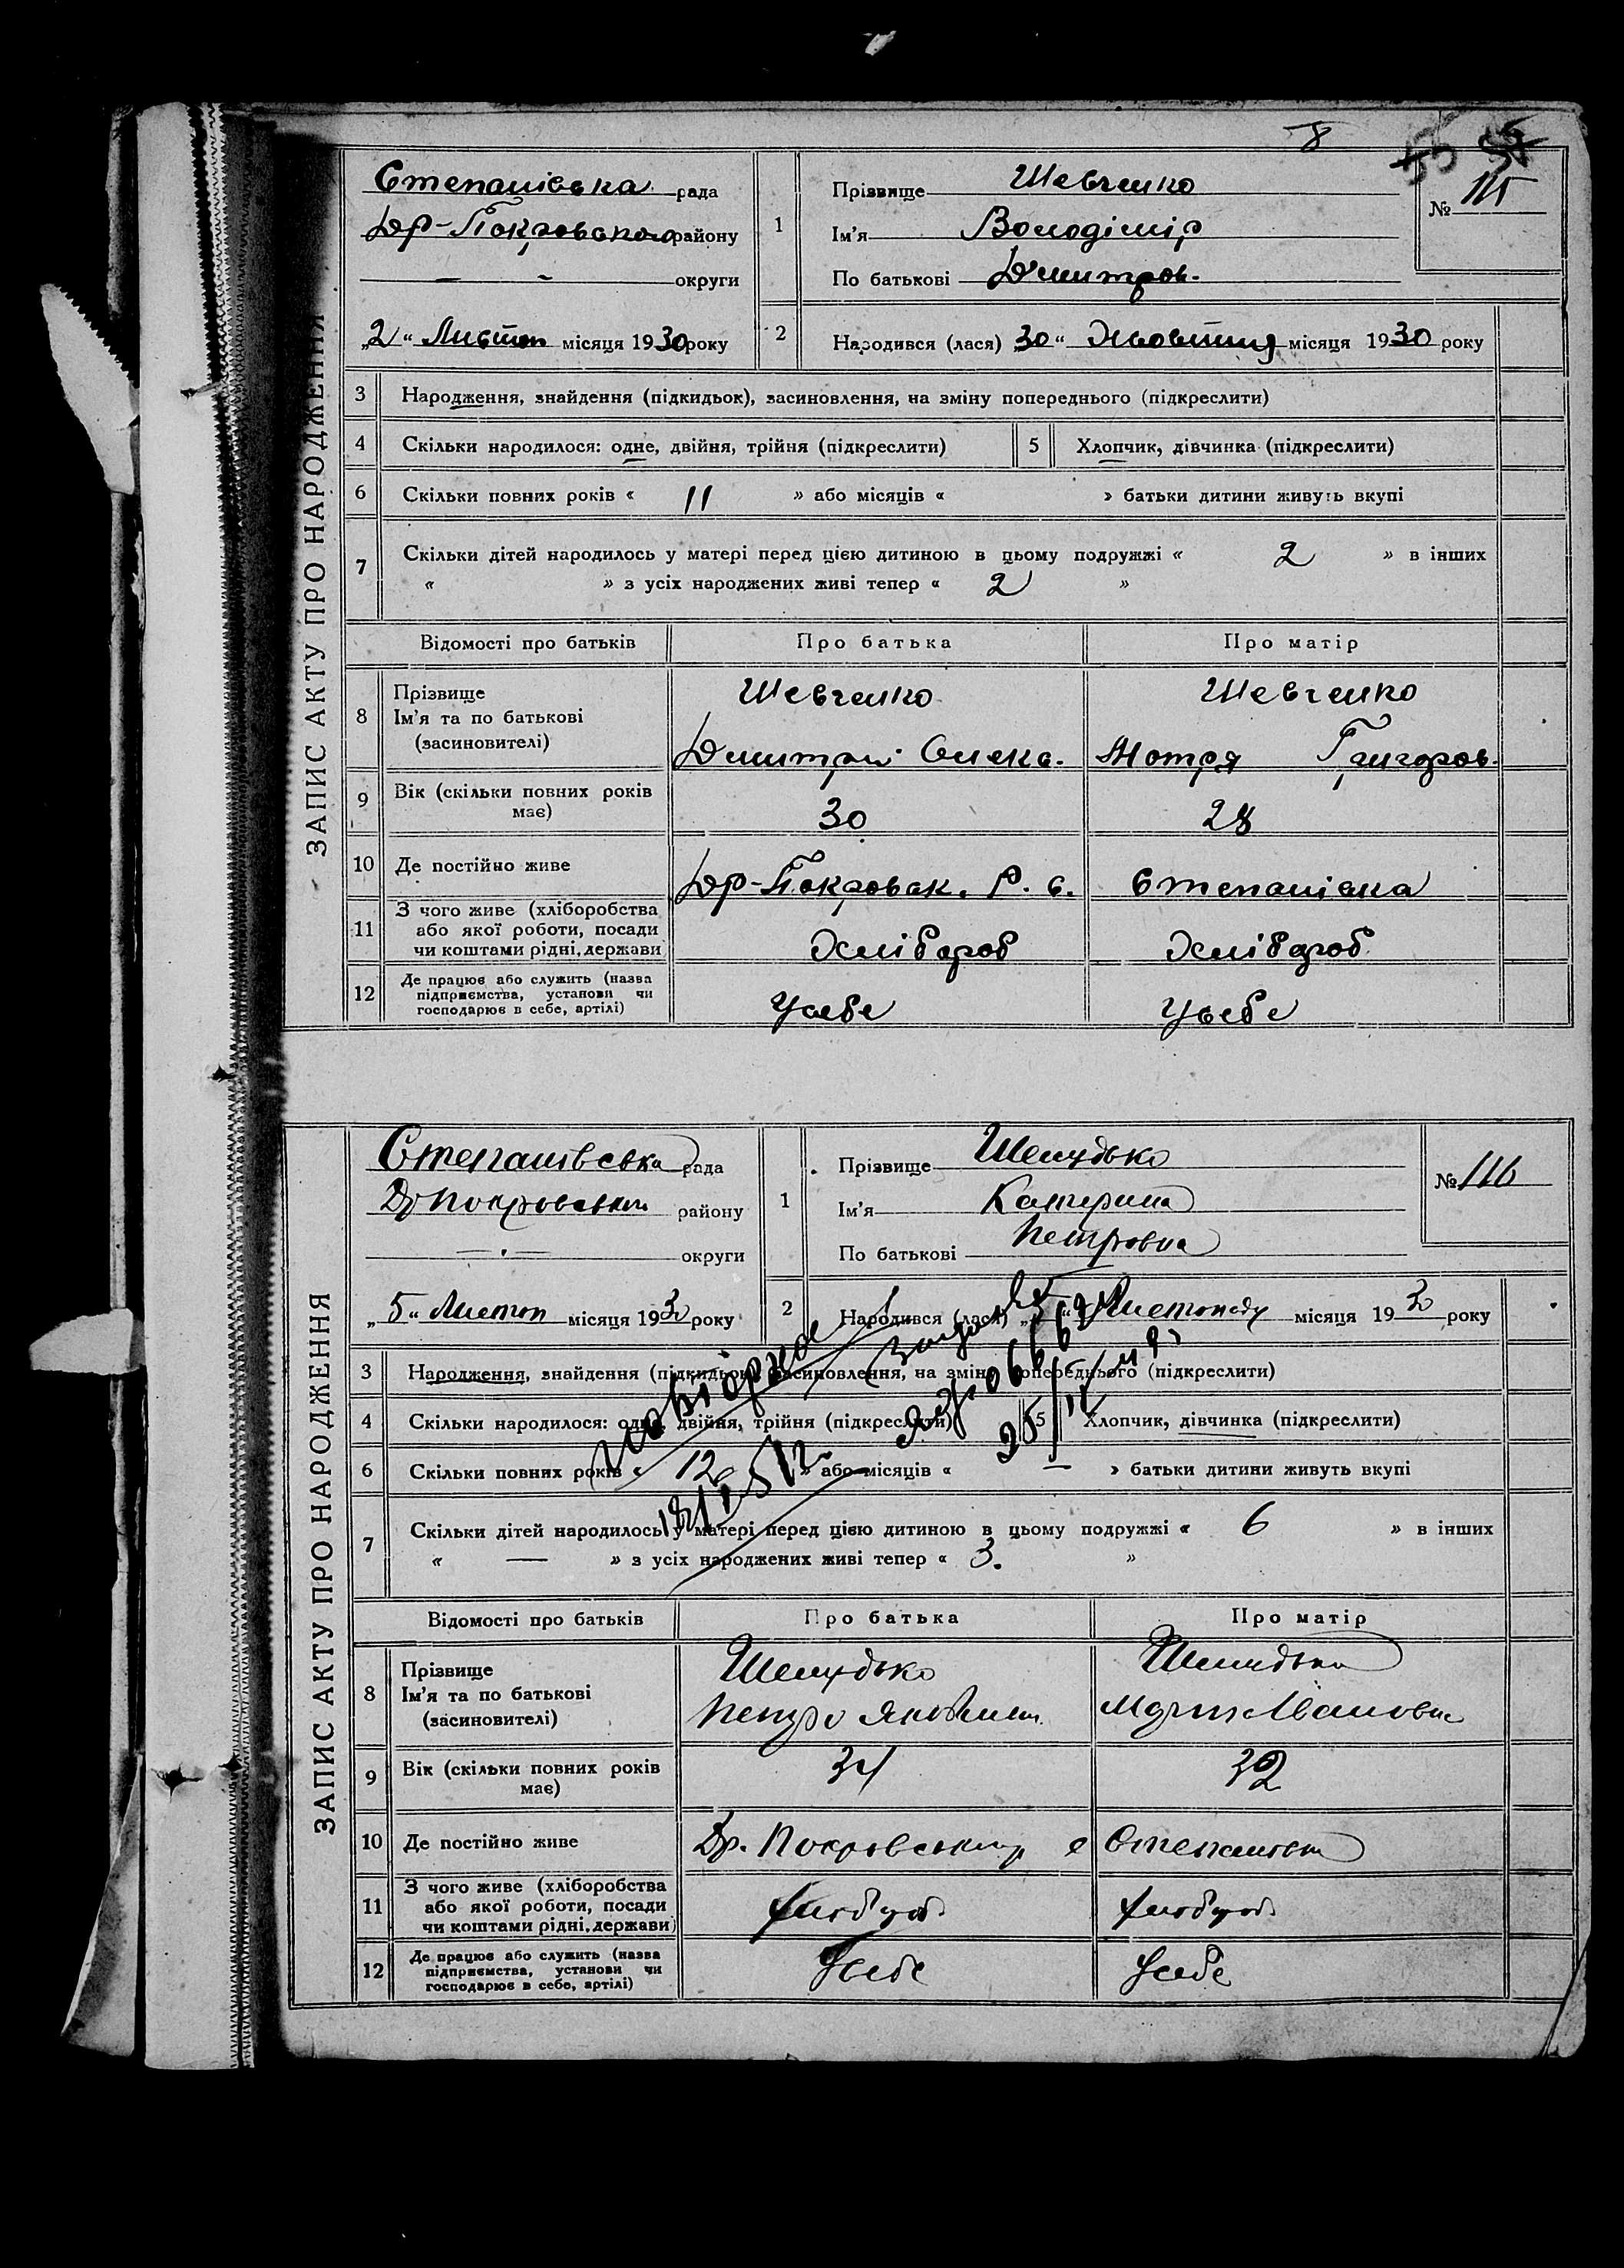 8
55
ЗАПИС АКТУ ПРО НАРОДЖЕННЯ
Степанівська рада
Др-Покровського району
— - округи
„2“ Листоп місяця 1930 року
1
Прізвище Шевченко
Ім'я Володімір
По батькові Дмитров.
№ 115
2
Народився (лася) „30“ Жовтня місяця 1930 року
3 Народження, знайдення (підкидьок), засиновлення, на зміну попереднього (підкреслити)
4 Скільки народилося: одне, двійня, трійня (підкреслити) 5 Хлопчик, дівчинка (підкреслити)
6 Скільки повних років « 11 » або місяців « » батьки дитини живуть вкупі
7 Скільки дітей народилось у матері перед цією дитиною в цьому подружжі « 2 » в інших
« » з усіх народжених живі тепер « 2 »
Відомості про батьків Про батька Про матір
8 Прізвище Шевченко Шевченко
Ім'я та по батькові
(засиновителі) Дмитрий Олекс. Мотря Григоров.
9 Вік (скільки повних років має) 30 28
10 Де постійно живе Др-Покровськ. Р. с. Степанівка
11 З чого живе (хліборобства
або якої роботи, посади
чи коштами рідні, держави) Хлібороб Хлібороб
12 Де працює або служить (назва
підприємства, установи чи
господарює в себе, артілі) Усебе Усебе
ЗАПИС АКТУ ПРО НАРОДЖЕННЯ
Степанівська рада
Др Покровський району
— . — округи
„5“ Листоп місяця 1930 року
1
Прізвище Шелудько
Ім'я Катерина
По батькові Петровна
№ 116
2
Народився (лася) Листопаду місяця 1930 року
3 Народження, знайдення (підкидьок), засиновлення, на зміну попереднього (підкреслити)
4 Скільки народилося: одне, двійня, трійня (підкреслити) 5 Хлопчик, дівчинка (підкреслити)
6 Скільки повних років « 12 » або місяців « — » батьки дитини живуть вкупі
7 Скільки дітей народилось у матері перед цією дитиною в цьому подружжі « 6 » в інших
« — » з усіх народжених живі тепер « 3. »
Відомості про батьків Про батька Про матір
8 Прізвище Шелудько Шелудько
Ім'я та по батькові
(засиновителі) Петро Яковлич Ивановна
9 Вік (скільки повних років має) 34 32
10 Де постійно живе Др. Покровський р с Степанівка
11 З чого живе (хліборобства
або якої роботи, посади
чи коштами рідні, держави) хлібороб хлібороб
12 Де працює або служить (назва
підприємства, установи чи
господарює в себе, артілі) Усебе Усебе